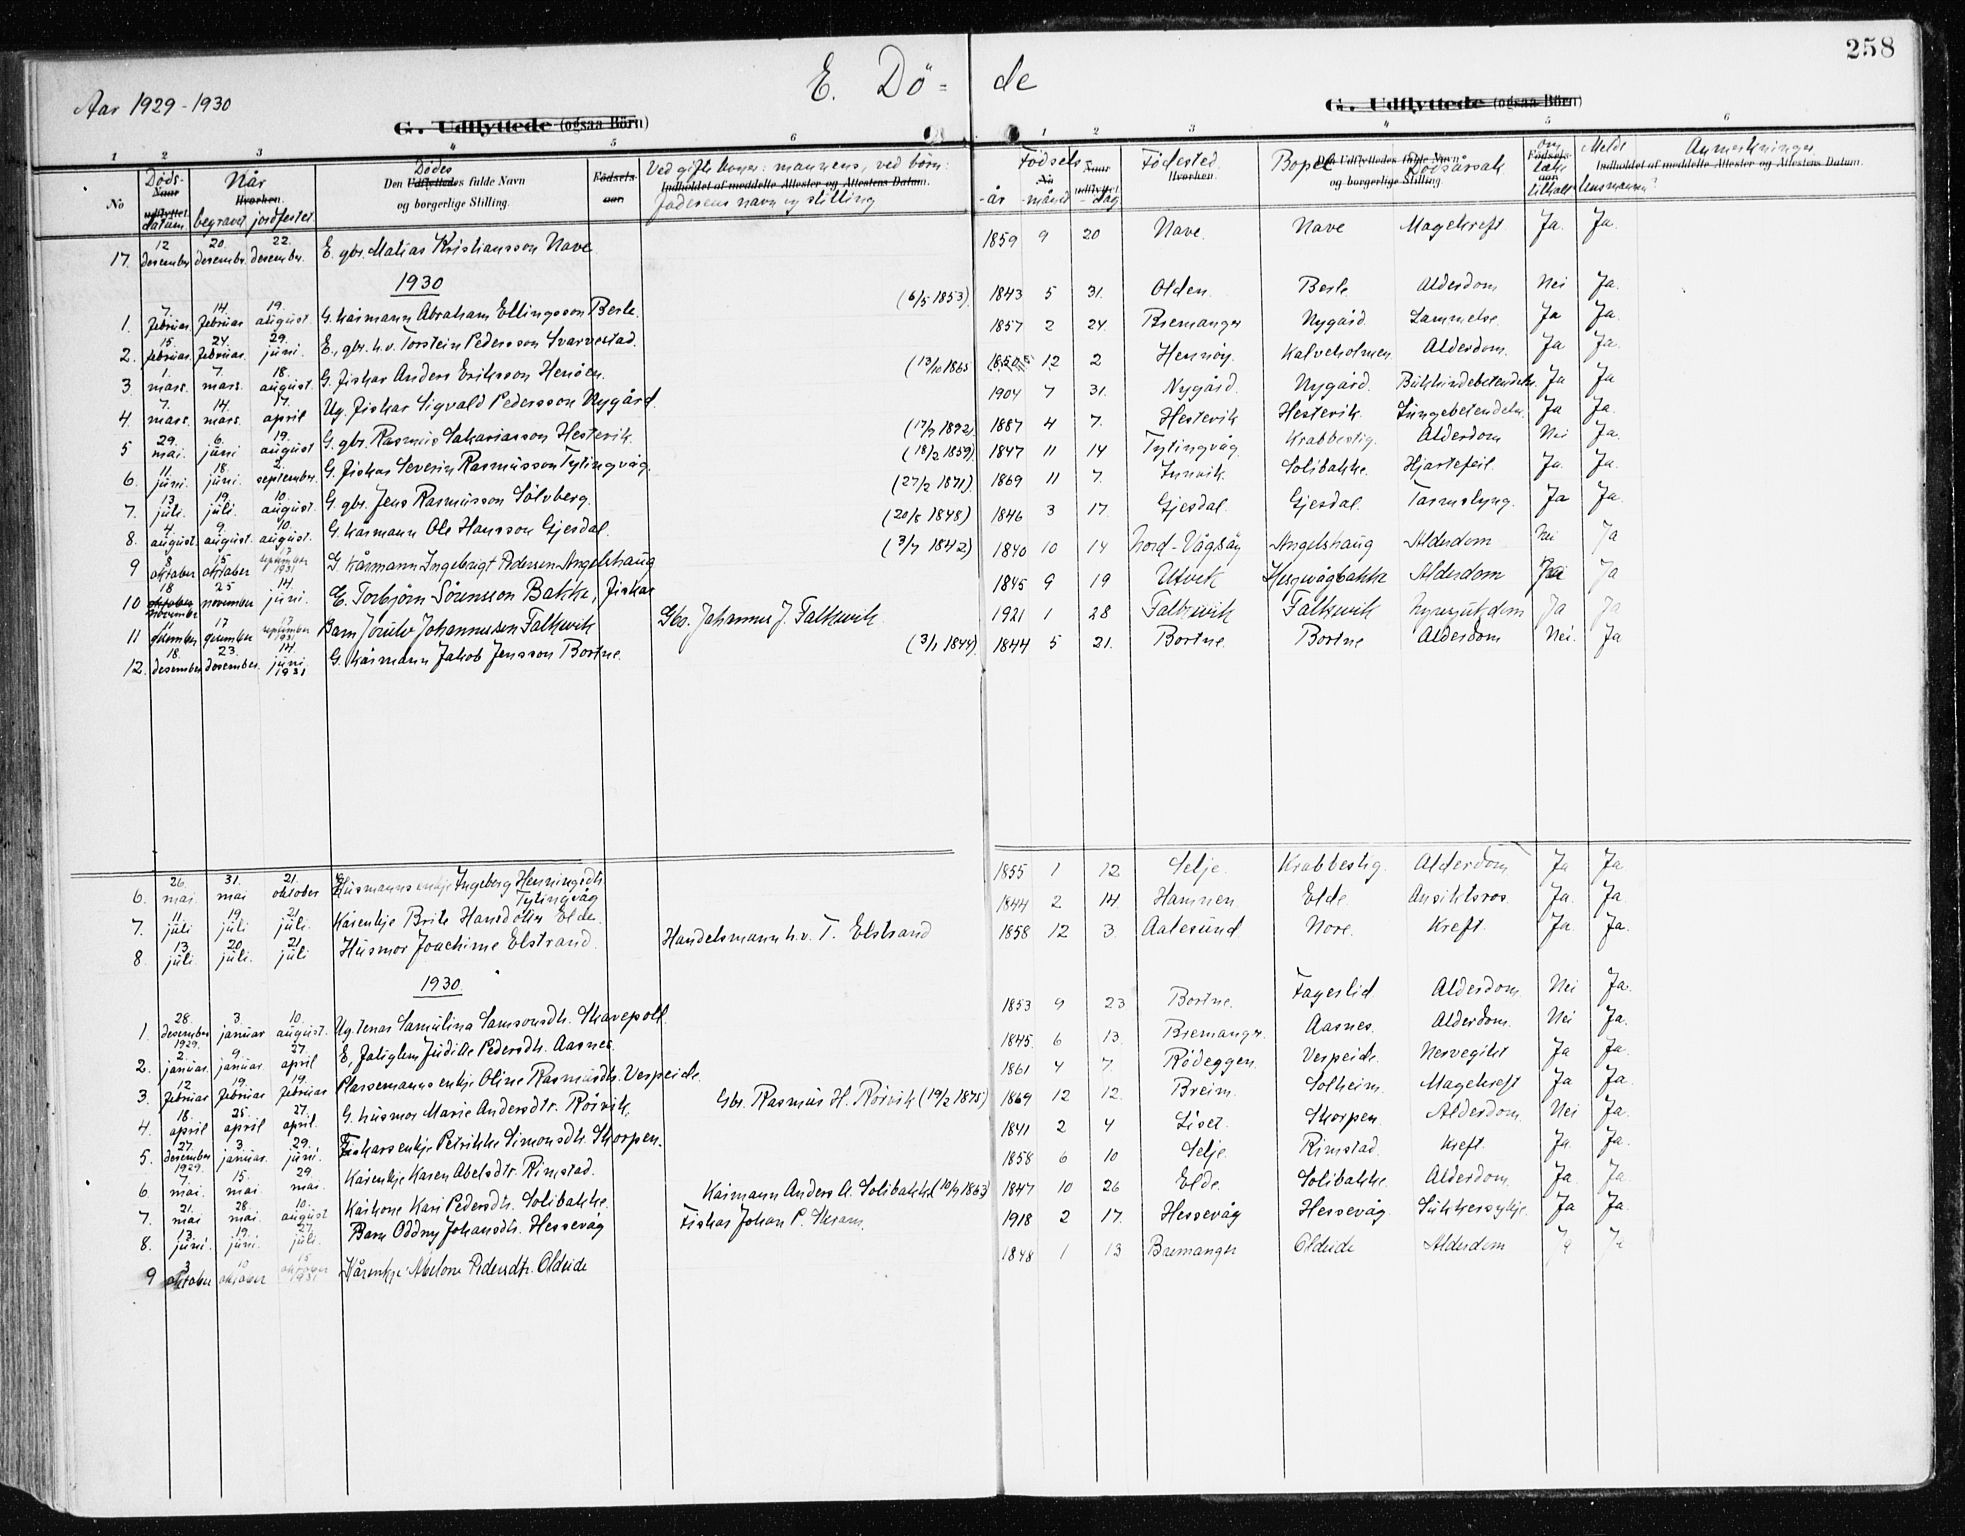 258
Aar 1929-1930
E. Dö- de
G. Udflyttede (ogsaa Börn)
G. Udflyttede (ogsaa Börn)
1 2 3 4 5 6 1 2 3 4 5 6
No Døds- Naar udflyttet. datum Når Hvorhen. begravet jordfestet Den Udflyttedes Dødes fulde Navn og borgerlige Stilling. Fødsels-aar. Ved gifte koner: mannens, ved børn: Indholdet af meddelte Attester og Attestens Datum. faderens navn og stilling
Fødsels år No måned Naar udflyttet dag Fødested. Hvorhen. Bopel Den Udflyttedes fulde Navn og borgerlige Stilling. Dødsårsak Fødsels-aar. om læke tilkalt Melde lensmannen? Indholdet af meddelte Attester og Attestens Datum. Anmerkninger
17. 12 desember 20. desembr. 22. desember. E. gbr. Matias Kristiansson Nave 1859 9 20 Nave. Nave Magekreft Ja. Ja.
1930
1. 7. februar 14. februar 19. august G. kårmann Abraham Ellingsson Berle. (6/5 1853) 1843 5 31. Olden. Berle Alderdom Nei Ja.
2. 15. februar. 24. februar. 29. juni. E. gbr. h.v. Torstein Pedersson Svarvestad. 1857 2 24. Bremanger Nygård Lammelse. Ja Ja.
3 1. mars. 7. mars. 18. august. G. fiskar Anders Eriksson Henöen. (13/10 1865 12 2 Hennöy. Kalveholmen Alderdom. Ja Ja.
4 7. mars. 14. mars. 17. april Ug. fiskar Sigvald Pedersson Nygård. 1904 7 31. Nygård. Nygård. Ja Ja
5 29. mai. 6. juni 19. august G. gbr. Rasmus Sakariasson Hestevik. (17/9 1892) 1887 4 7. Hestevik Hestevik. Lungebetendelse. Ja Ja.
6. 11. juni. 18. juni. 2. september. G. fiskar Severin Rasmusson Tytingvåg. (18/2 1859) 1847 11 14 Tytingvåg Krabbestig. Alderdom Nei Ja.
7. 13. juli. 19. juli. 10. august G. gbr. Jens Rasmusson Sölvberg. (27/2 1871) 1869 11 7. Innvik. Solibakke. Hjartefeil. Ja. Ja.
8. 4 august. 9. august. 10. august. G. kårmann Ole Hansson Gjesdal. (20/8 1848) 1846 3 17. Gjesdal. Gjesdal. Tarmslyng. Ja Ja.
9 8 oktober 15 oktober 17 september 1931 G. kårmann Ingebrigt Pedersen Angelshaug (3/7 1842) 1840 10 14 Nord-Vågsöy Angelshaug Alderdom Nei Ja
10 18 oktober november 25 november 14. juni. E. Torbjørn Sörensson Bakke, fiskar 1845 9 19 Utvik Alderdom Ja
11 11 desember 17 desember 17 september 1931 Barn Johannessen Falkevik Gbr. Johannes J. Falkevik 1921 1 28 Falkevik Falkevik Ja Ja
12. 18. desember 23. desember. 14. juni. 1931 G. kårmann Jakob Jensson Bortne. (3/1 1844) 1844 5 21. Bortne. Bortne Alderdom Nei. Ja
6. 26. mai. 31. mai 21. oktober Husmannsenkje Ingeborg Henningsdtr. Tytingvåg 1855 1 12 Selje. Krabbestig. Alderdom Ja Ja.
7. 11. juli 19. juli 21. juli. Kårenkje Brite Hansdotter Elde. 1844 2 14 Hamnen. Elde. Ansiktsros. Ja. Ja.
8. 13. juli 20. juli. 21. juli Husmor Joachime Elstrand. Handelsmann h.v. T. Elstrand 1858 12 3. Aalesund Nore. Kreft. Ja. Ja.
1930.
1. 28. desember 1929. 3. januar 10. august. Ug. tenar Samulina Samsonsdtr. Skavepoll. 1853 9 23 Bortne. Fageslid. Alderdom Nei Ja.
2. 2. januar. 9. januar. 27. april E. fatiglem Judite Pedersdtr. Aasnes. 1845 6 13. Bremanger. Aasnes. Alderdom. Nei Ja.
3. 12. februar 19. februar 19. februar Plassemannsenkje Oline Rasmusdtr. Verpeide. 1861 4 7. Rödeggen. Verpeide. Nervegikt Ja Ja.
4. 18. april 25. april 27. april. G. husmor Marie Andersdtr. Rörvik. Gbr. Rasmus H. Rörvik (19/2 1875) 1869 12 12. Breim. Solheim. Magekreft Ja Ja.
5. 27. desember 1929. 3. januar. 29. juni. Fiskarsenkje Petrikke Simonsdtr. Skorpen. 1841 2 4 Liset. Skorpen. Alderdom. Nei Ja.
6 7. mai. 15. mai 29. mai. Kårenkje Karen Abelsdtr. Rimstad. 1858 6 10 Selje. Rimstad. Kreft. Ja. Ja.
7. 21. mai 28. mai. 10. august Kårkone Kari Pedersdtr. Solibakke. Kårmann Anders A. Solibakke (10/9 1863) 1847 10 26 Elde. Solibakke. Alderdom. Ja Ja
8. 13. juni. 19. juni. 27. juli. Barn Oddny Johansdtr. Hessevåg Fiskar Johan P. Skram. 1918 2 17. Hessevåg Hessevåg. Sukkersykje. Ja Ja.
9 3 oktober 10 oktober 15 oktober 1931 Kårenkje Abelone Pedersdtr. Oldeide 1848 1 13 Bremanger Oldeide Alderdom Ja Ja